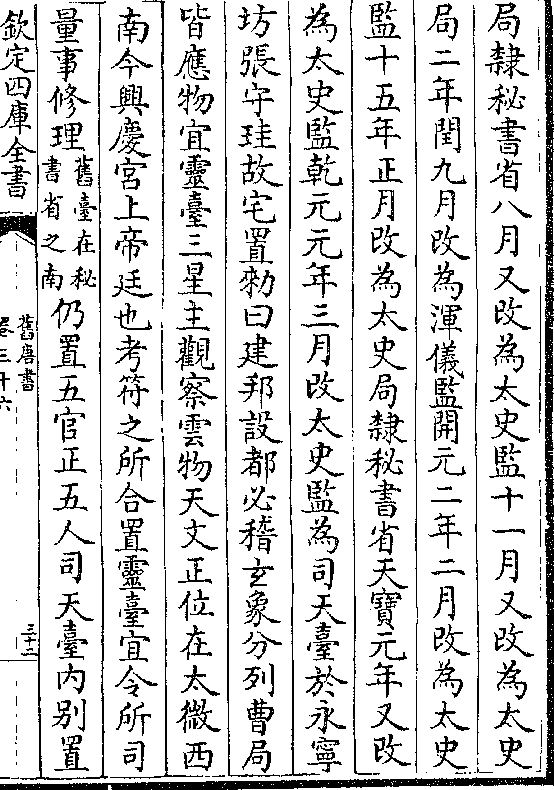 局隸秘書省八月又改為太史監十一月又改為太史
局二年閏九月改為渾儀監開元二年二月改為太史
監十五年正月改為太史局隸秘書省天寶元年又改
為太史監乾元元年三月改太史監為司天臺於永寧
坊張守珪故宅置勑曰建邦設都必稽玄象分列曹局
皆應物宜靈臺三星主觀察雲物天文正位在太微西
南今興慶宮上帝廷也考符之所合置靈臺宜令所司
量事修理舊臺在秘書省之南仍置五官正五人司天臺內別置
欽定四庫全書
舊唐書
卷三十六
三十二